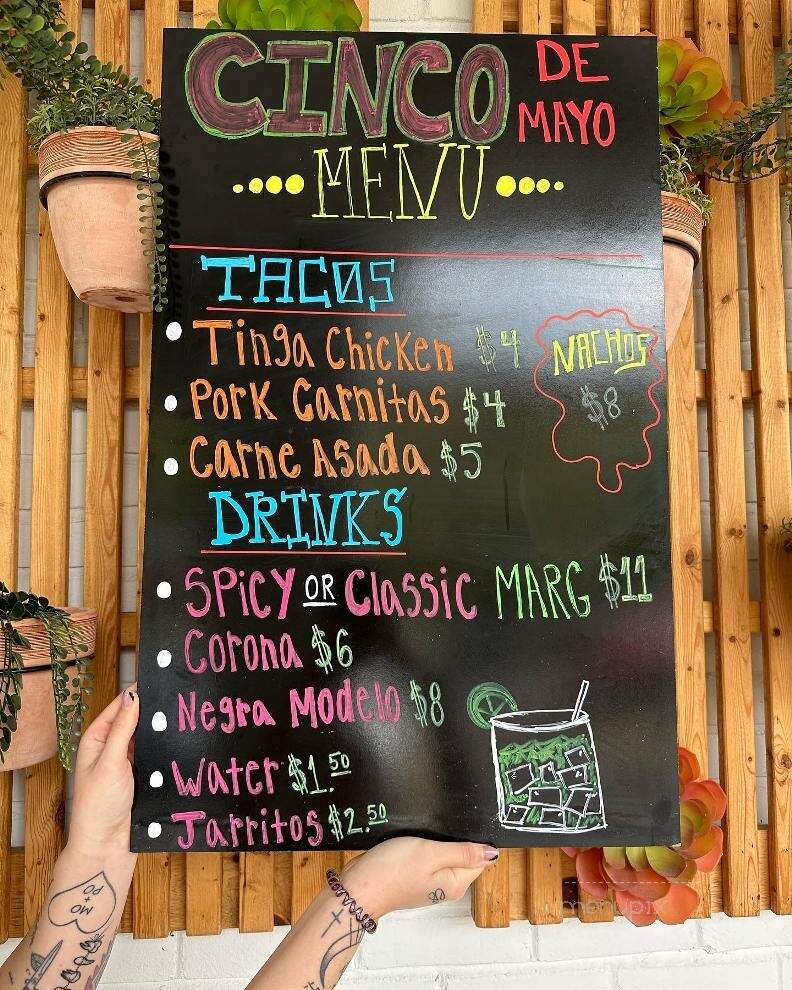 CINCO DE MAYO
MENU
TACOS
Tinga Chicken $4
Pork Carnitas $4
Carne Asada $5
NACHOS
$8
DRINKS
SPicy OR Classic MARG $11
Corona $6
Negra Modelo $8
Water $1.50
Jarritos $2.50
MO
+
PO
menupix